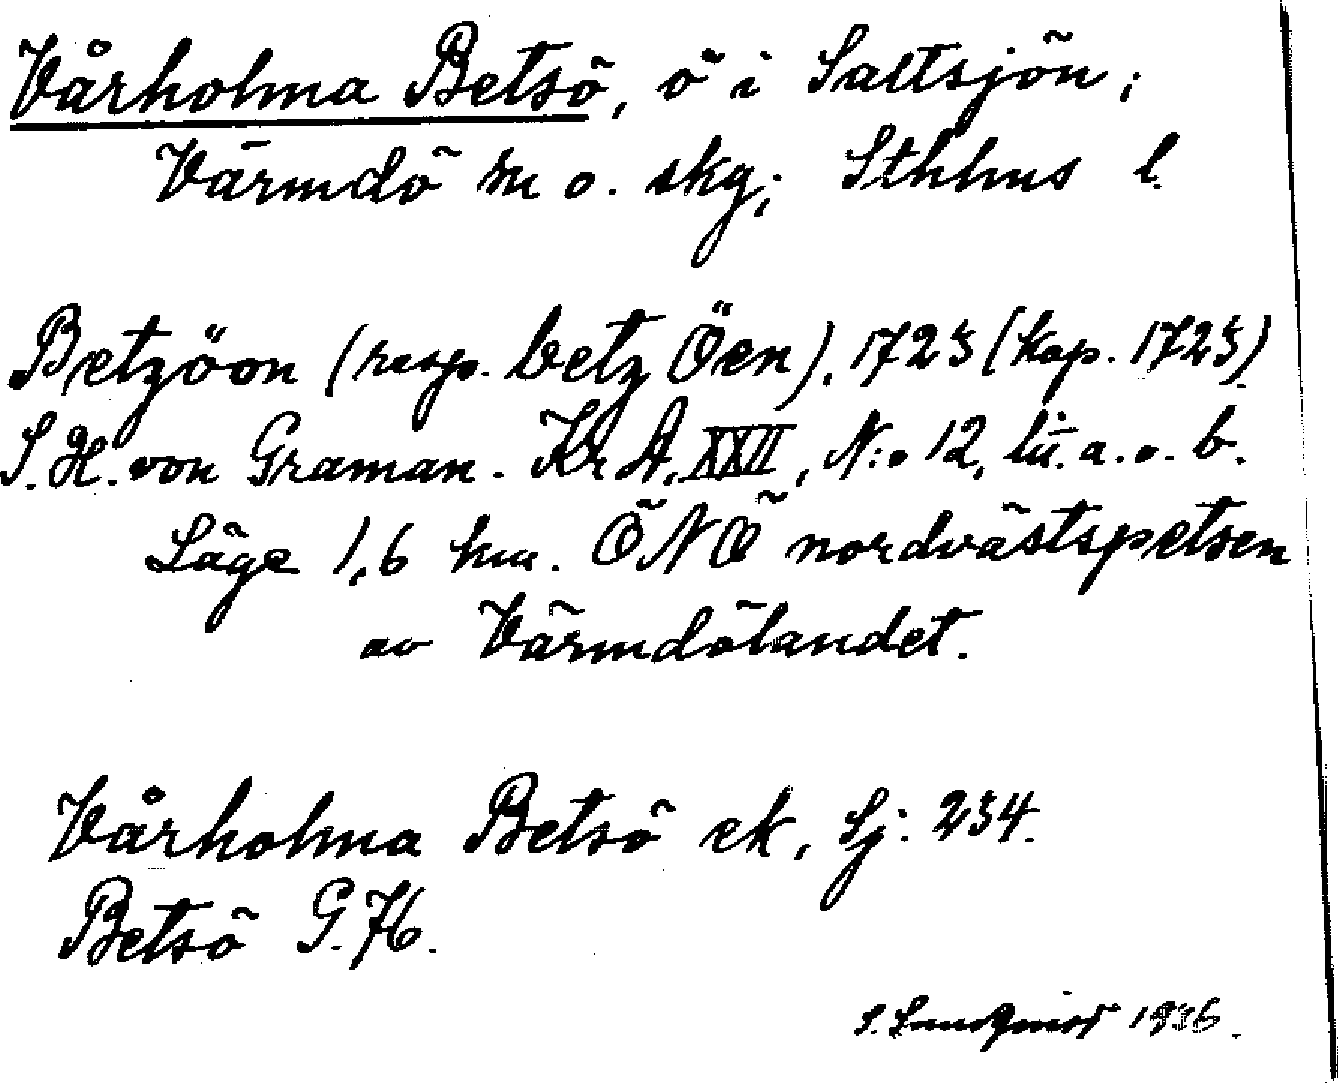 Vårholma Betsö, ö i Saltsjön;
Värmdö sn o. skg; Sthlms l.
Betzöon (resp. betz Öen). 1723 (kop. 1723)
S. H. von Graman. Kr A, XXII, N:o 12, lit. a. o. b.
Läge 1,6 km. ÖNÖ nordvästspetsen
av Värmdölandet.
Vårholma Betsö ek, Sj: 234.
Betsö G. 76.
S. Lundquist 1936.